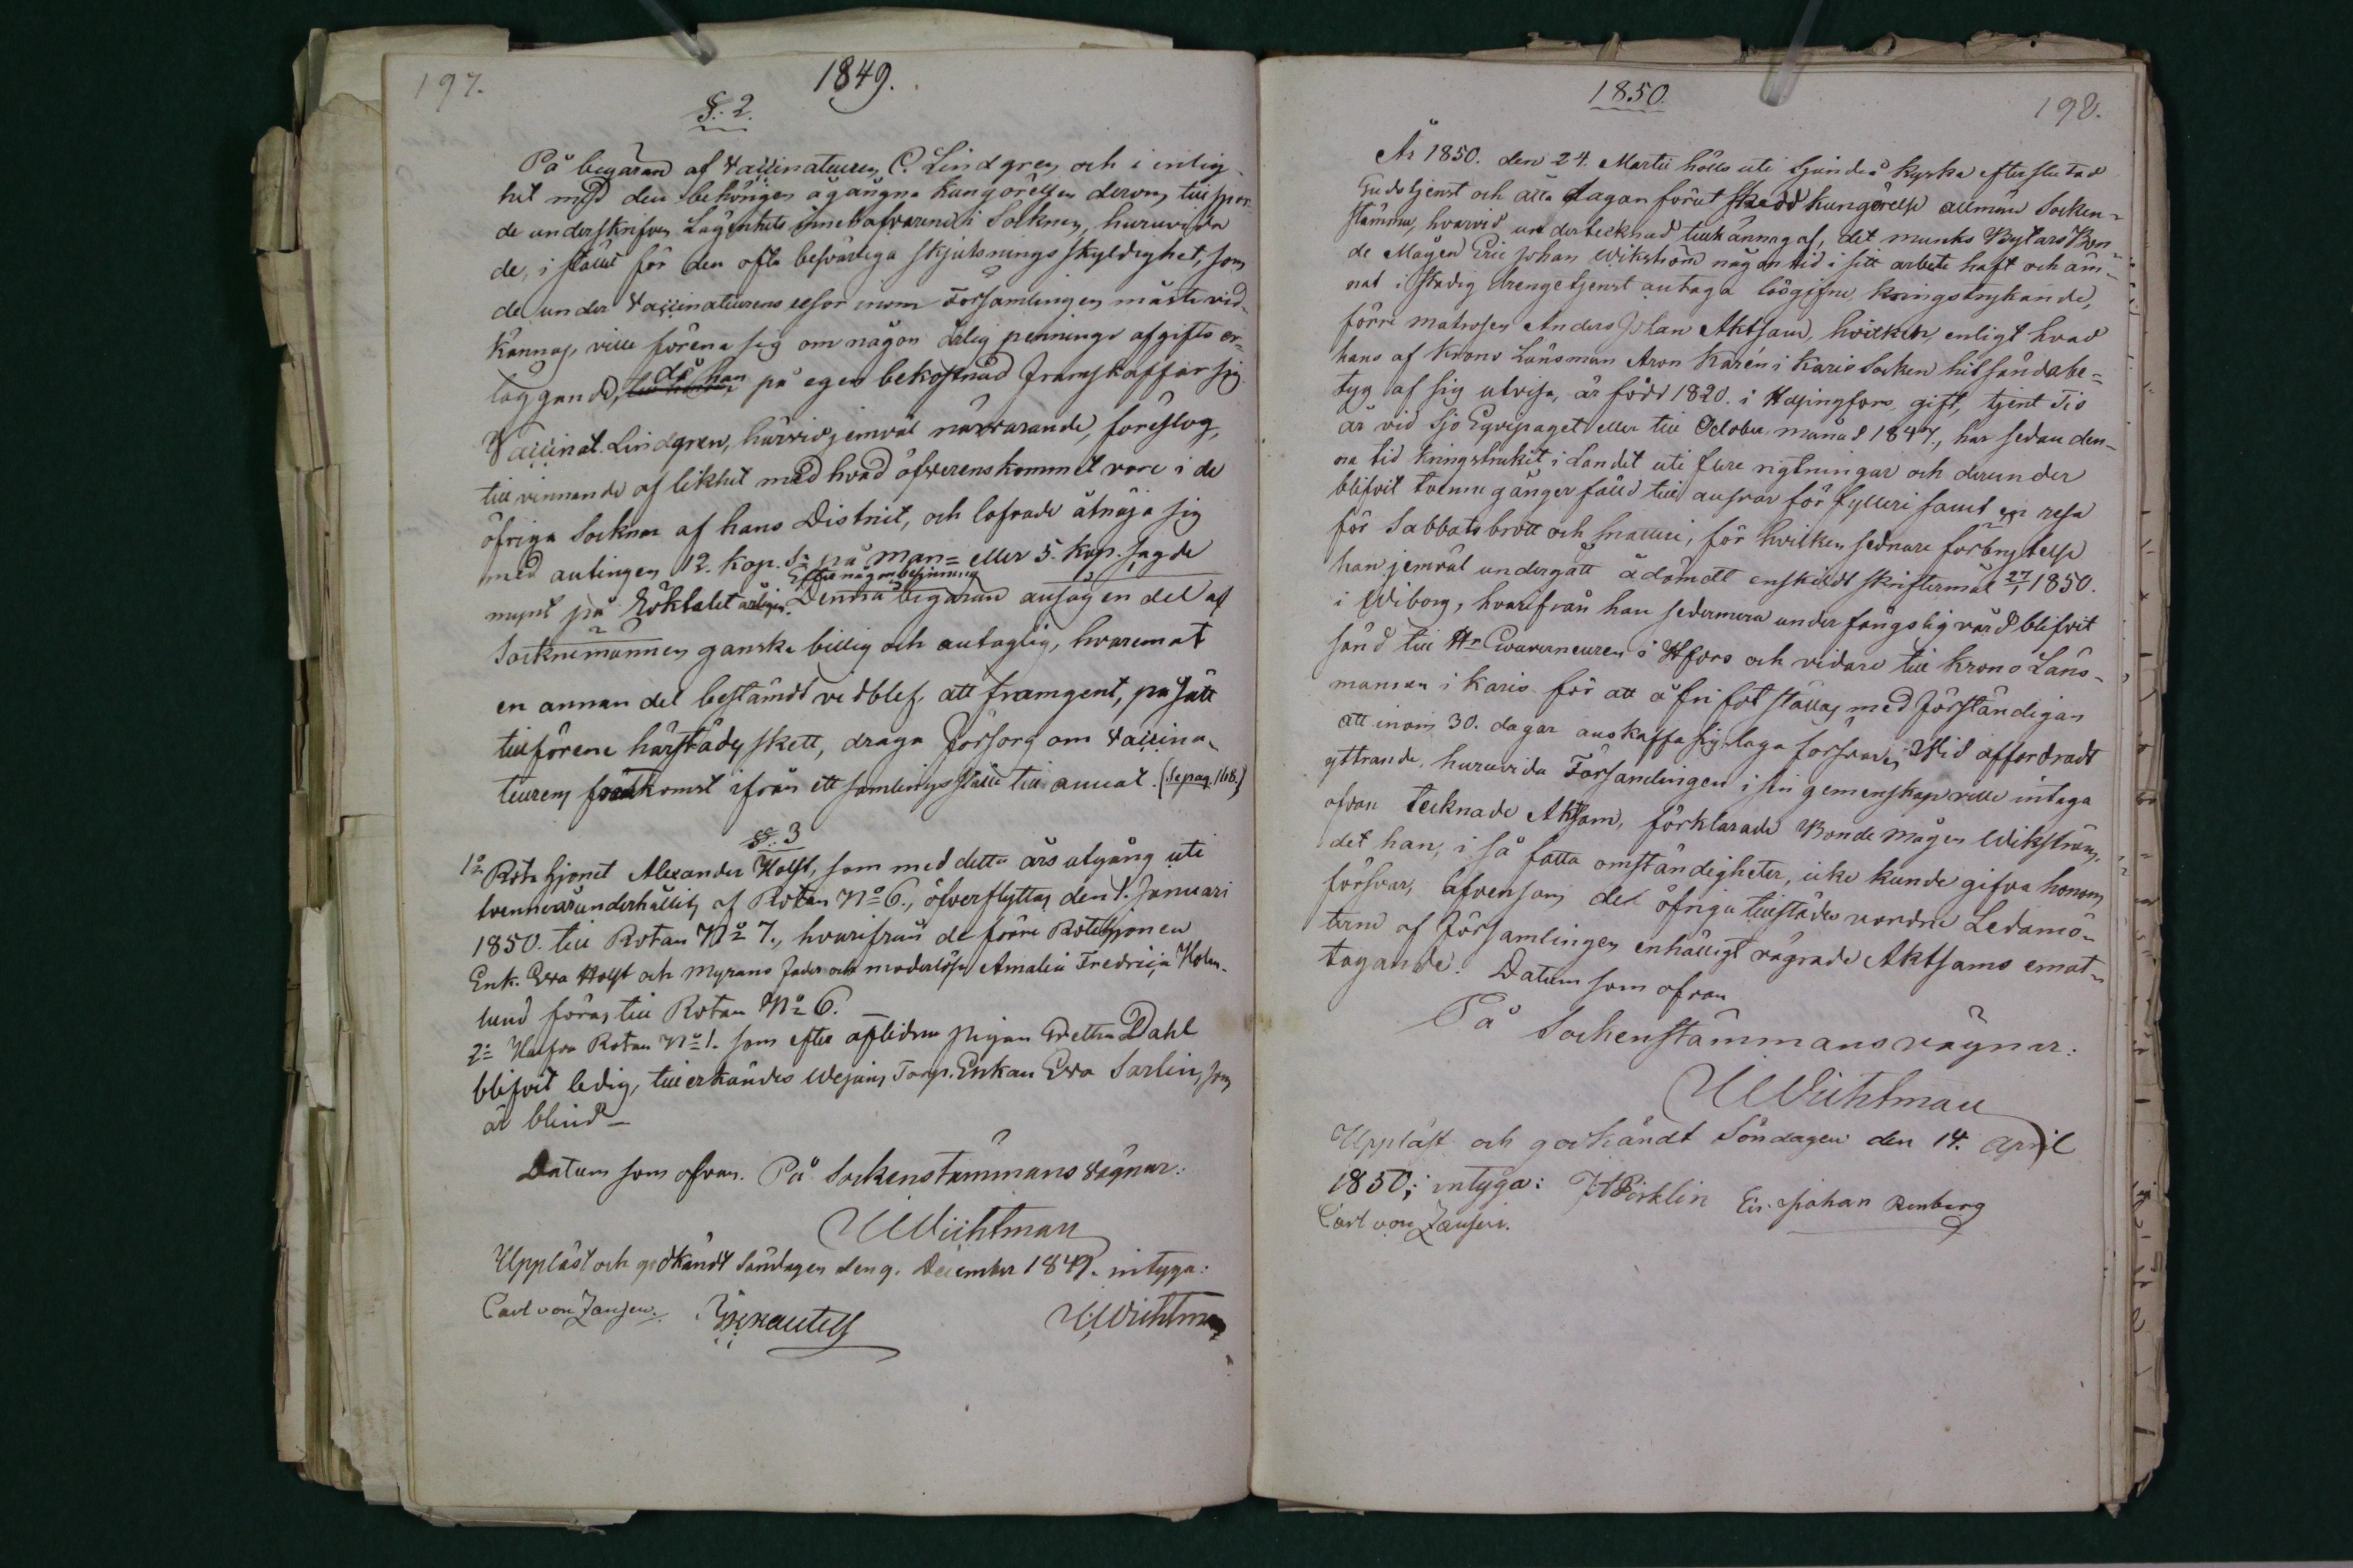 197.
1849.
§. 2.
På begäran af Vaccinateuren C. Lindgren och i enlig-
het med den behörigen ågångna kungörelsen derom, tillspor-
de underskrifven Lägenhets innehafvarene i Socknen, huruvida
de, i stället för den ofta besvärliga skjutsningsskyldighet, som
de under Vaccinateurens resor inom Församlingen måste vid-
kännas, ville förena sig om någon årlig pennings afgifts er-
läggande, då han på egen bekostnad framskaffar sig.
Vaccinat. Lindgren, härvid jemväl närvarande, föreslog,
till vinnande af likhet med hvad öfverenskommet vore i de
öfriga Socknar af hans District, och lofvade åtnöja sig
med antingen 12. kop. Sr på Man= eller 5. kop. sagde
mynt på Röktalet årligen. Efter någon besinning
Denna begäran ansåg en del af
Socknemännen ganska billig och antaglig, hvaremot
en annan del bestämdt vidblef, att framgent, på sätt
tillförene härstädes skett, draga försorg om Vaccina-
teurens fortkomst ifrån ett samlingsställe till annat. (Se pag. 168.)
§. 3
1o Rotehjonet Alexander Holst, som med detta års utgång uti
tvenne år underhållits af Rotan No 6., öfverflyttas den 1. Januari
1850. till Rotan No 7., hvarifrån de förre Rotehjonen
Enk. Eva Holst och Myrans fader och moderlösa Amalia Fredrica Holm-
lund föras till Rotan No 6.
2o Halfva Rotan No 1. som efter aflidna pigan Gretha Dahl
blifvit ledig, tillerkändes Wejans Torp. Enkan Eva Sarlin, som
är blind
Datum som ofvan. På Sockenstämmans vägnar:
Wichtman
Uppläst och godkändt Söndagen den 9. December 1849. intyga:
Carl von Jansen.
Wichtman
1850.
198.
År 1850. den 24. Martii hölls uti Sjundeå Kyrka efter slutad
Gudstjenst och åtta dagar förut skedd kungörelse allmän Socken-
stämma, hvarvid undertecknad tillkännagaf, det Munks Bytars Bon-
de Mågen Eric Johan Wikström någon tid i sitt arbete haft och äm-
nat i stadig drengetjenst antaga lösgifne, kringstrykande,
förre matrosen Anders Johan Aktsam, hvilken, enligt hvad
hans af Krono Länsman Aron Karén i Karis Socken hitsända be-
tyg af sig utvisa, är född 1820. i Helsingfors, gift, tjent Tio
år vid Sjö Eqvipaget eller till October månad 1847., har sedan den-
na tid kringstrukit i Landet uti flere rigtningar och derunder
blifvit tvenne gånger fälld till ansvar för fylleri samt en resa
för Sabbatsbrott och snatteri, för hvilken sednare förbrytelse
han jemväl undergått ådömdt enskildt skriftermål 27/1 1850.
i Wiborg, hvarifrån han sedermera under fångslig vård blifvit
sänd till Hr Gouverneuren i Hfors och vidare till Krono Läns-
mannen i Karis för att å fri fot ställas, med förständigan
att inom 30. dagar anskaffa sig laga försvar. Vid affordradt
yttrande, huruvida Församlingen i sin gemenskap ville intaga
ofvan tecknade Aktsam, förklarade Bonde Mågen Wikström,
det han, i så fatta omständigheter, icke kunde gifva honom
försvar, äfvensom det öfriga tillstädes vordne Ledamö-
terne af Församlingen enhälligt vägrade Aktsams emot-
tagande. Datum som ofvan
På Sockenstämmans vägnar:
Wichtman
Uppläst och godkändt Söndagen den 14. April
1850; intyga: Eric Johan Renberg
Carl von Jansen.